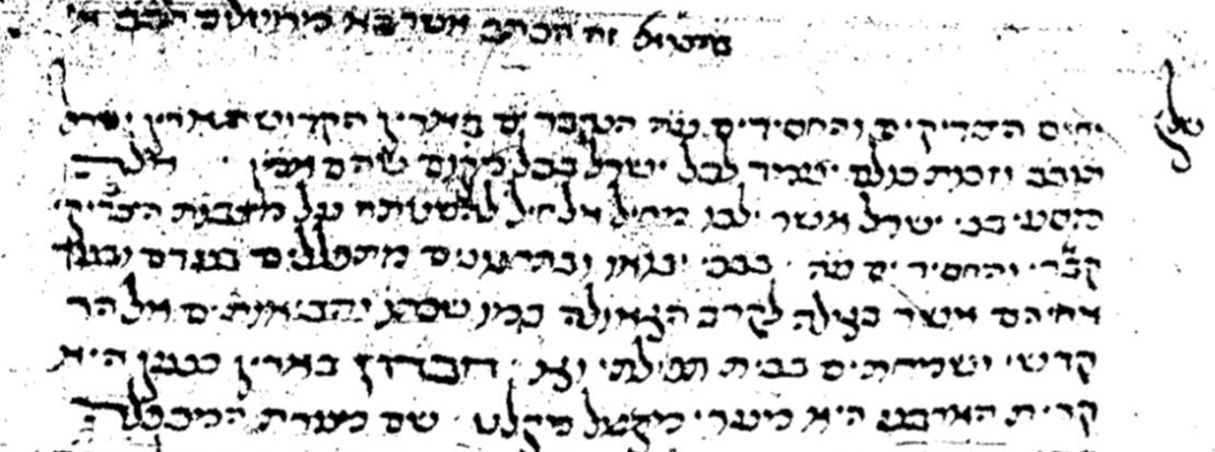 זה הכתב אשר בא מירושלם תבב
יחוס הצדיקים והחסידים ע״ה הנקברים בארץ הקדושה ארץ ישראל
תובב וזכות כולם יעמוד לכל ישראל בכל מקום שהם אמן אלה
מסעי בני ישראל אשר ילכו מחיל אל חיל להשתטח על מצבות הצדיקי׳
קברי והחסידים ע״ה בבכי יבואו ובתחנונים מתפללים בעדם ובעד
אחיהם אשר בגולה לקרב הגאולה כמו שכתוב והביאותים אל הר
קדשי ושמחתים בבית תפלתי וגו׳ חברון בארץ כנען היא
קרית הארבע היא מערי מקלט שם מערת המכפלה